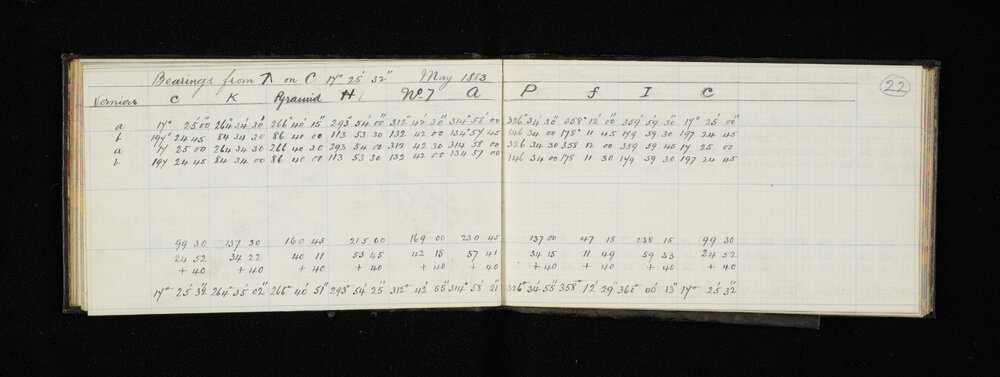 Bearings from 7 on C 17° 25' 32" May 1883
22
Verniers C K Pyramid H No 7 A P f I C
a 17° 25' 00" 264° 34' 30" 266° 40' 15" 293° 54' 00" 312° 42' 30" 314° 58' 00" 326° 34' 30" 358° 12' 00" 359° 59' 30" 17° 25' 00"
b 197° 24 45 84 34 30 86 40 00 113 53 30 132 42 00 134° 57 45 146 34 00 178° 11 45 179 59 30 197 24 45
a 17 25 00 264 34 30 266 40 30 293 54 00 312 42 30 314 58 00 326 34 30 358 12 00 359 59 45 17 25 00
b 197 24 45 84 34 00 86 40 00 113 53 30 132 42 00 134 57 00 146 34 00 178 11 30 179 59 30 197 24 45
99 30 137 30 160 45 215 00 169 00 230 45 137 00 47 15 238 15 99 30
24 52 34 22 40 11 53 45 42 15 57 41 34 15 11 49 59 33 24 52
+ 40 + 40 + 40 + 40 + 40 + 40 + 40 + 40 + 40 + 40
17° 25' 32" 264° 35' 02" 266° 40' 51" 293° 54' 25" 312° 42' 55" 314° 58' 21" 326° 34' 55" 358° 12' 29" 360° 00' 13" 17° 25' 32"